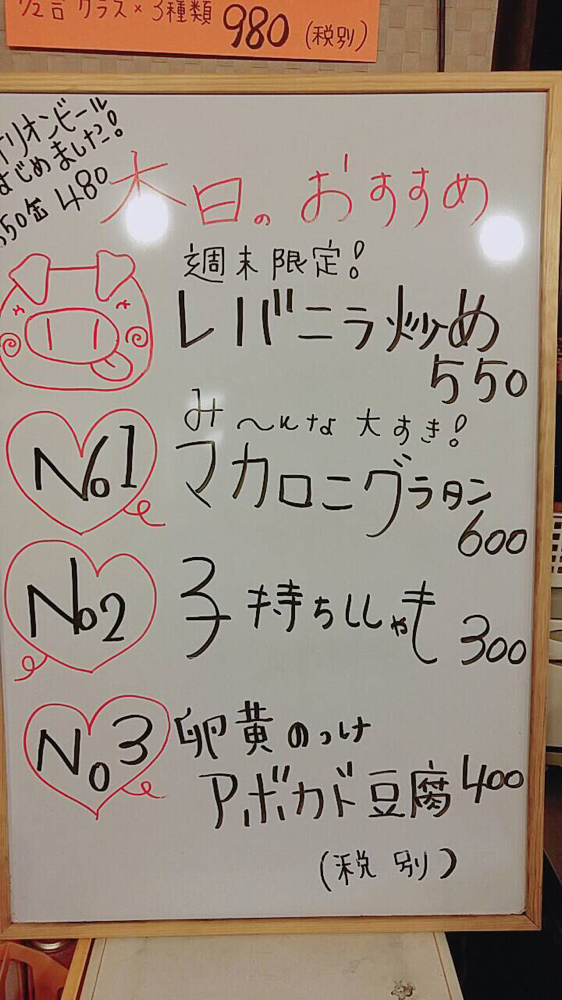 1/2合グラス×3種類 980 (税別)
オリオンビール
はじめました!
350缶 480
本日のおすすめ
週末限定!
レバニラ炒め
550
み〜んな大すき!
No1 マカロニグラタン
600
No2 子持ちししゃも 300
No3 卵黄のっけ
アボカド豆腐 400
(税別)